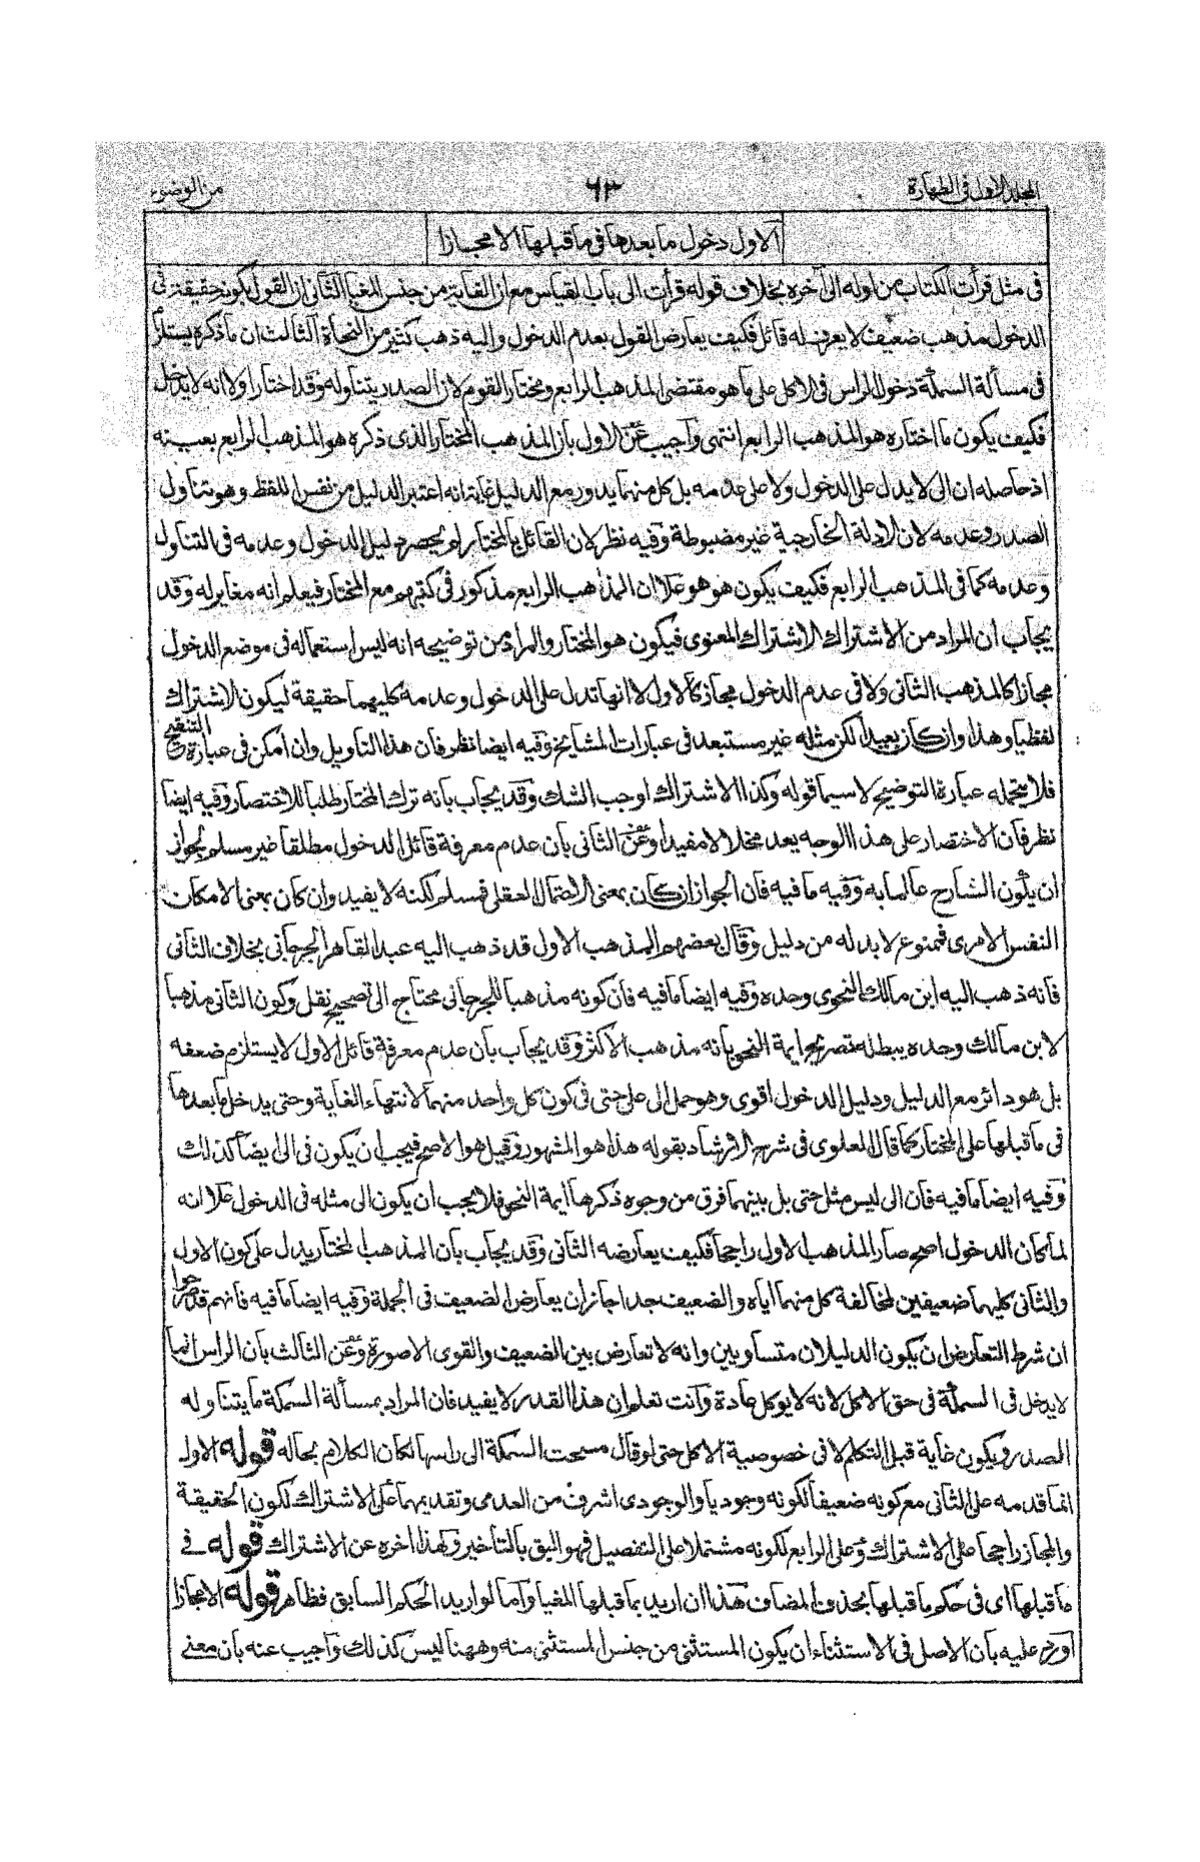 المجلد الاول فى الطهارة
٦٣
من الوضوء
الاول دخول ما بعدها فى ما قبلها الا مجازا
فى مثل قرأت الكتاب من اوله الى آخره بخلاف قوله قرأت الى باب القياس مع ان الغاية من جنس المغيا الثانى ان القول بكونه حقيقة فى
الدخول مذهب ضعيف لا يعرف له قائل فكيف يعارض القول بعدم الدخول واليه ذهب كثير من النحاة الثالث ان ما ذكره يستلزم
فى مسألة السمكة دخول الراس فى الاكل على ما هو مقتضى المذهب الرابع ومختار القوم لان الصدر يتناوله وقد اختار اولا انه لا يدخل
فكيف يكون ما اختاره هو المذهب الرابع انتهى واجيب عن الاول بان المذهب المختار الذى ذكره هو المذهب الرابع بعينه
اذ حاصله ان الى لا يدل على الدخول ولا على عدمه بل كل منهما يدور مع الدليل غايته انه اعتبر الدليل من نفس اللفظ وهو تناول
الصدر وعدمه لان الادلة الخارجية غير مضبوطة وفيه نظر لان القائل بالمختار لم يحصر دليل الدخول وعدمه فى التناول
وعدمه كما فى المذهب الرابع فكيف يكون هو هو علا ان المذهب الرابع مذكور فى كتبهم مع المختار فيعلم انه مغاير له وقد
يجاب ان المراد من الاشتراك الاشتراك المعنوى فيكون هو المختار والمراد من توضيحه انه ليس استعماله فى موضع الدخول
مجازا كالمذهب الثانى ولا فى عدم الدخول مجاز كالاول لا انها تدل على الدخول وعدمه كليهما حقيقة ليكون الاشتراك
لفظيا وهذا وان كان بعيدا لكن مثله غير مستبعد فى عبارات المشايخ وفيه ايضا نظر فان هذا التاويل وان امكن فى عبارة التنقيح
فلا يتحمله عبارة التوضيح لا سيما قوله وكذا الاشتراك اوجب الشك وقد يجاب بانه ترك المختار طلبا للاختصار وفيه ايضا
نظر فان الاختصار على هذا الوجه يعد مخلا لا مفيدا وعن الثانى بان عدم معرفة قائل الدخول مطلقا غير مسلم لجواز
ان يكون الشارح عالما به وفيه ما فيه فان الجواز ان كان بمعنى الاحتمال العقلى فمسلم لكنه لا يفيد وان كان بمعنى الامكان
النفس الامرى فممنوع لا بد له من دليل وقال بعضهم المذهب الاول قد ذهب اليه عبد القاهر الجرجانى بخلاف الثانى
فانه ذهب اليه ابن مالك النحوى وحده وفيه ايضا ما فيه فان كونه مذهبا للجرجانى محتاج الى تصحيح نقل وكون الثانى مذهبا
لابن مالك وحده يبطله تصريح ايمة النحو بانه مذهب الاكثر وقد يجاب بان عدم معرفة قائل الاول لا يستلزم ضعفه
بل هو دائر مع الدليل ودليل الدخول اقوى وهو حمل الى على حتى فى كون كل واحد منهما لانتهاء الغاية وحتى يدخل ما بعدها
فى ما قبلها على المختار كما قال العلوى فى شرح الارشاد بقوله هذا هو المشهور وقيل هو الاصح فيجب ان يكون فى الى ايضا كذلك
وفيه ايضا ما فيه فان الى ليس مثل حتى بل بينهما فرق من وجوه ذكرها ايمة النحو فلا يجب ان يكون الى مثله فى الدخول علا انه
لما كان الدخول اصح صار المذهب الاول راجحا فكيف يعارضه الثانى وقد يجاب بان المذهب المختار يدل على كون الاول
والثانى كليهما ضعيفين لمخالفة كل منهما اياه والضعيف جدا جاز ان يعارض الضعيف فى الجملة وفيه ايضا ما فيه فانهم قد صرحوا
ان شرط التعارض ان يكون الدليلان متساويين وانه لا تعارض بين الضعيف والقوى الا صورة وعن الثالث بان الراس انما
لا يدخل فى السمكة فى حق الاكل لانه لا يوكل عادة وانت تعلم ان هذا القدر لا يفيد فان المراد بمسألة السمكة ما يتناوله
الصدر ويكون غاية قبل التكلم لا فى خصوصية الاكل حتى لو قال مسحت السمكة الى راسها لكان الكلام بحاله قوله الاول
انما قدمه على الثانى مع كونه ضعيفا لكونه وجوديا والوجودى اشرف من العدمى وتقديمهما على الاشتراك لكون الحقيقة
والمجاز راجحا على الاشتراك وعلى الرابع لكونه مشتملا على التفصيل فهو اليق بالتاخير ولهذا اخره عن الاشتراك قوله فى
ما قبلها اى فى حكم ما قبلها بحذف المضاف هذا ان اريد بما قبلها المغيا واما لو اريد الحكم السابق فظاهر قوله الا مجازا
اورد عليه بان الاصل فى الاستثناء ان يكون المستثنى من جنس المستثنى منه وههنا ليس كذلك واجيب عنه بان معنى